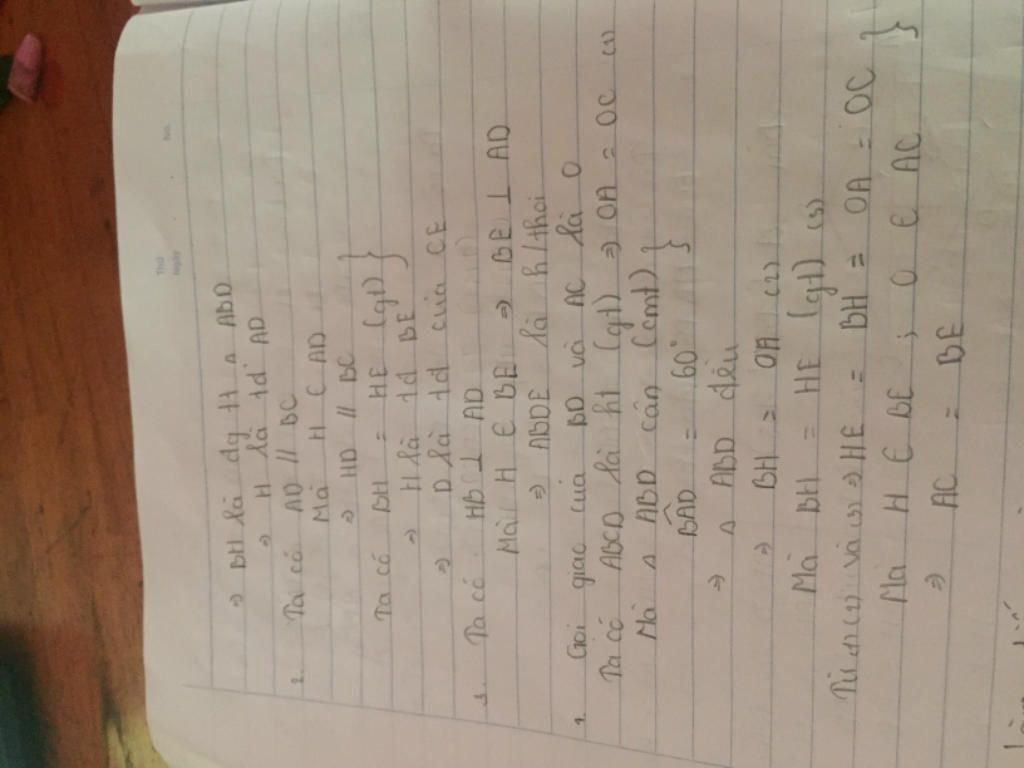 Thứ
Ngày
No.
⇒ BH là đg H △ ABD
⇒ H là td AD
2. Ta có AD // BC
Mà H ∈ AD
⇒ HD // BC
Ta có BH = HE (gt) }
⇒ H là td BE
⇒ D là td của CE
3. Ta có HB ⊥ AD
Mà H ∈ BE ⇒ BE ⊥ AD
⇒ ABDE là h/thoi
Gọi giao của BD và AC là O
Ta có ABCD là ht (gt) ⇒ OA = OC (1)
Mà △ ABD cân (cmt) }
BAD = 60°
⇒ △ ABD đều
⇒ BH = OA (2)
Mà BH = HE (gt) (3)
Từ (1) (2) và (3) ⇒ HE = BH = OA = OC }
Mà H ∈ BE ; O ∈ AC
⇒ AC = BE